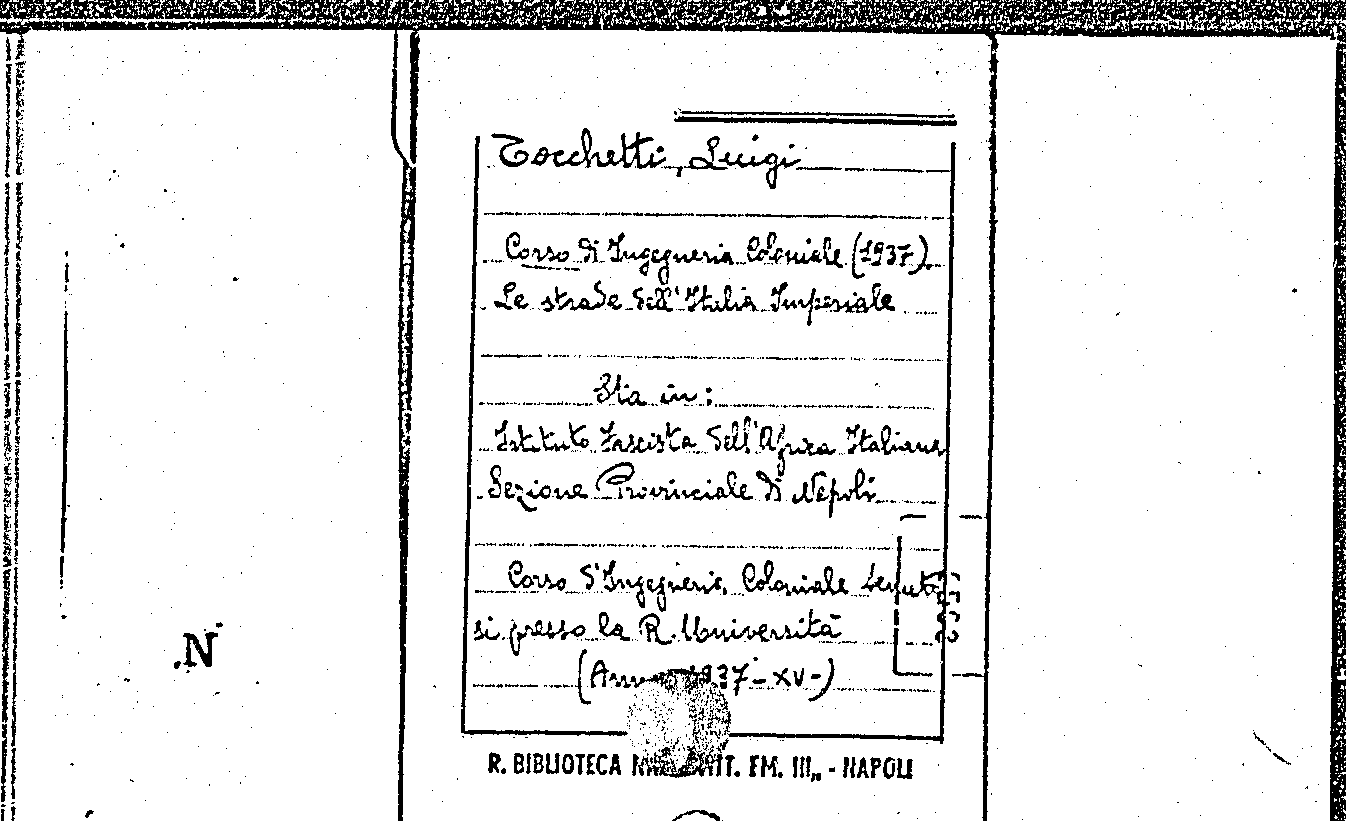 Tocchetti, Luigi
Corso di Ingegneria Coloniale (1937)
Le strade dell'Italia Imperiale
Sta in:
Istituto Fascista dell'Africa Italiana
Sezione Provinciale di Napoli
Corso d'Ingegneria Coloniale tenuto
si presso la R. Università
(Anno 1937-XV-)
.N
R. BIBLIOTECA VITT. EM. III„ - NAPOLI